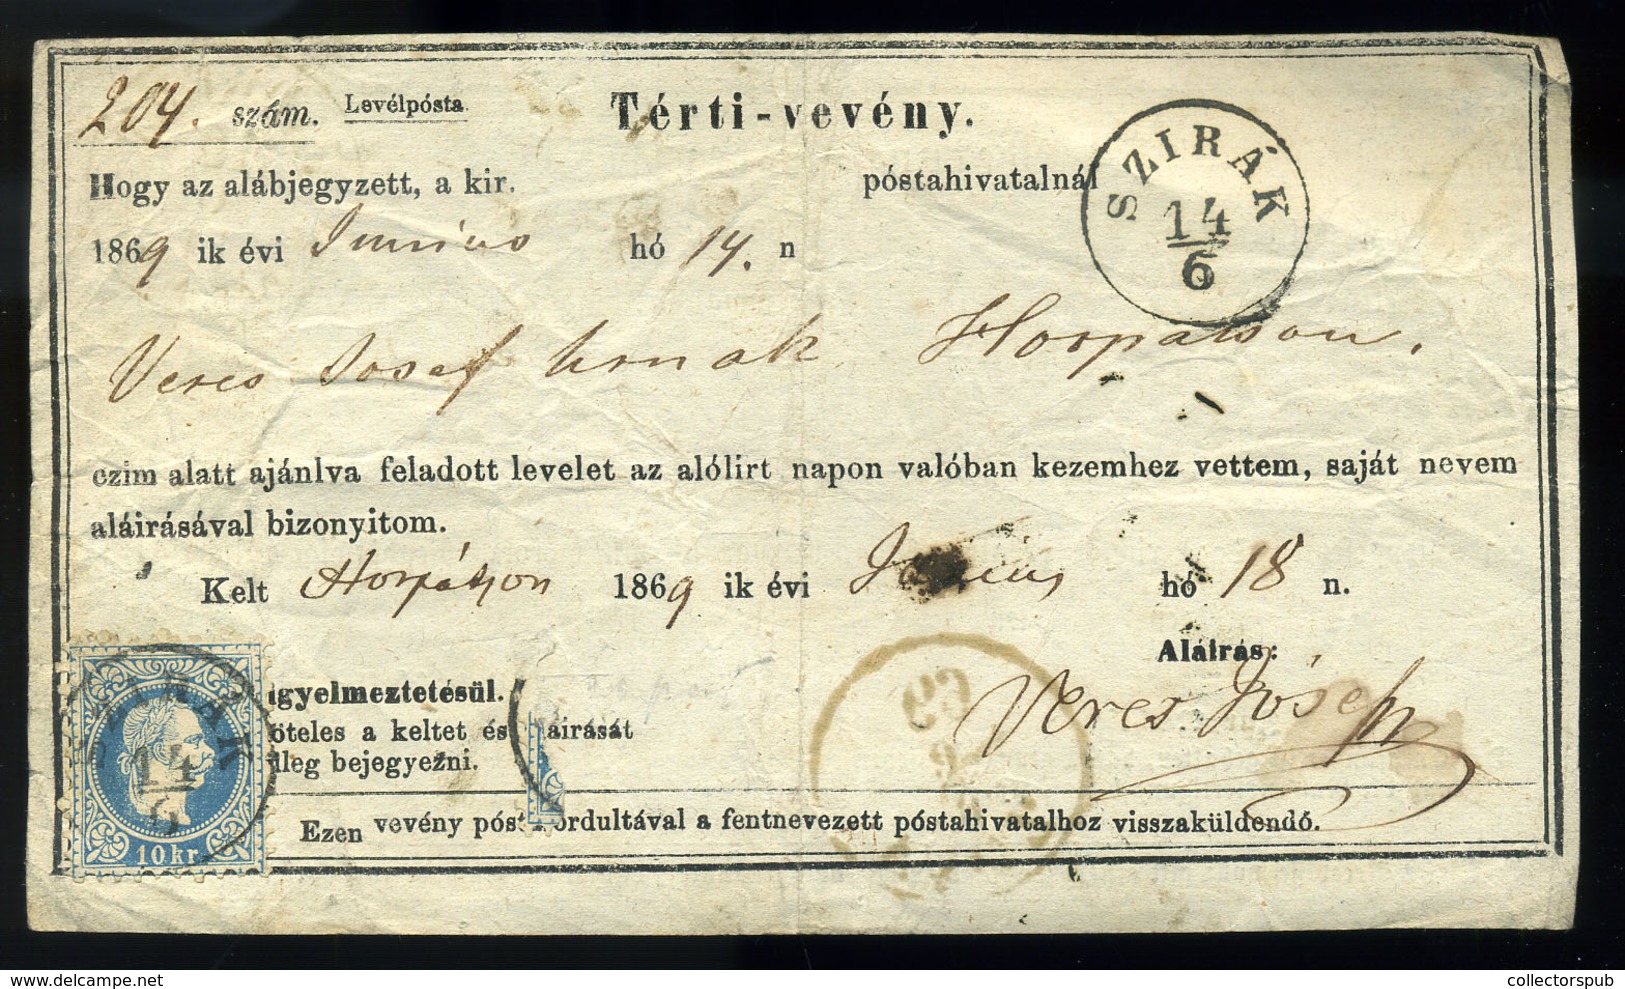 204. szám. Levélpósta Térti-vevény.
Hogy az alábjegyzett, a kir. póstahivatalnál
1869 ik évi Junius hó 14. n
SZIRÁK
14
6
Veres Josef Urnak Horpatson.
czim alatt ajánlva feladott levelet az alólirt napon valóban kezemhez vettem, saját nevem
aláirásával bizonyitom.
Kelt Horpátson 1869 ik évi Junius hó 18 n.
Aláirás:
Veres Jósef
igyelmeztetésül.
öteles a keltet és airását
ileg bejegyezni.
Ezen vevény póst fordultával a fentnevezett póstahivatalhoz visszaküldendő.
SZIRÁK
14
6
10 kr
collectorspub